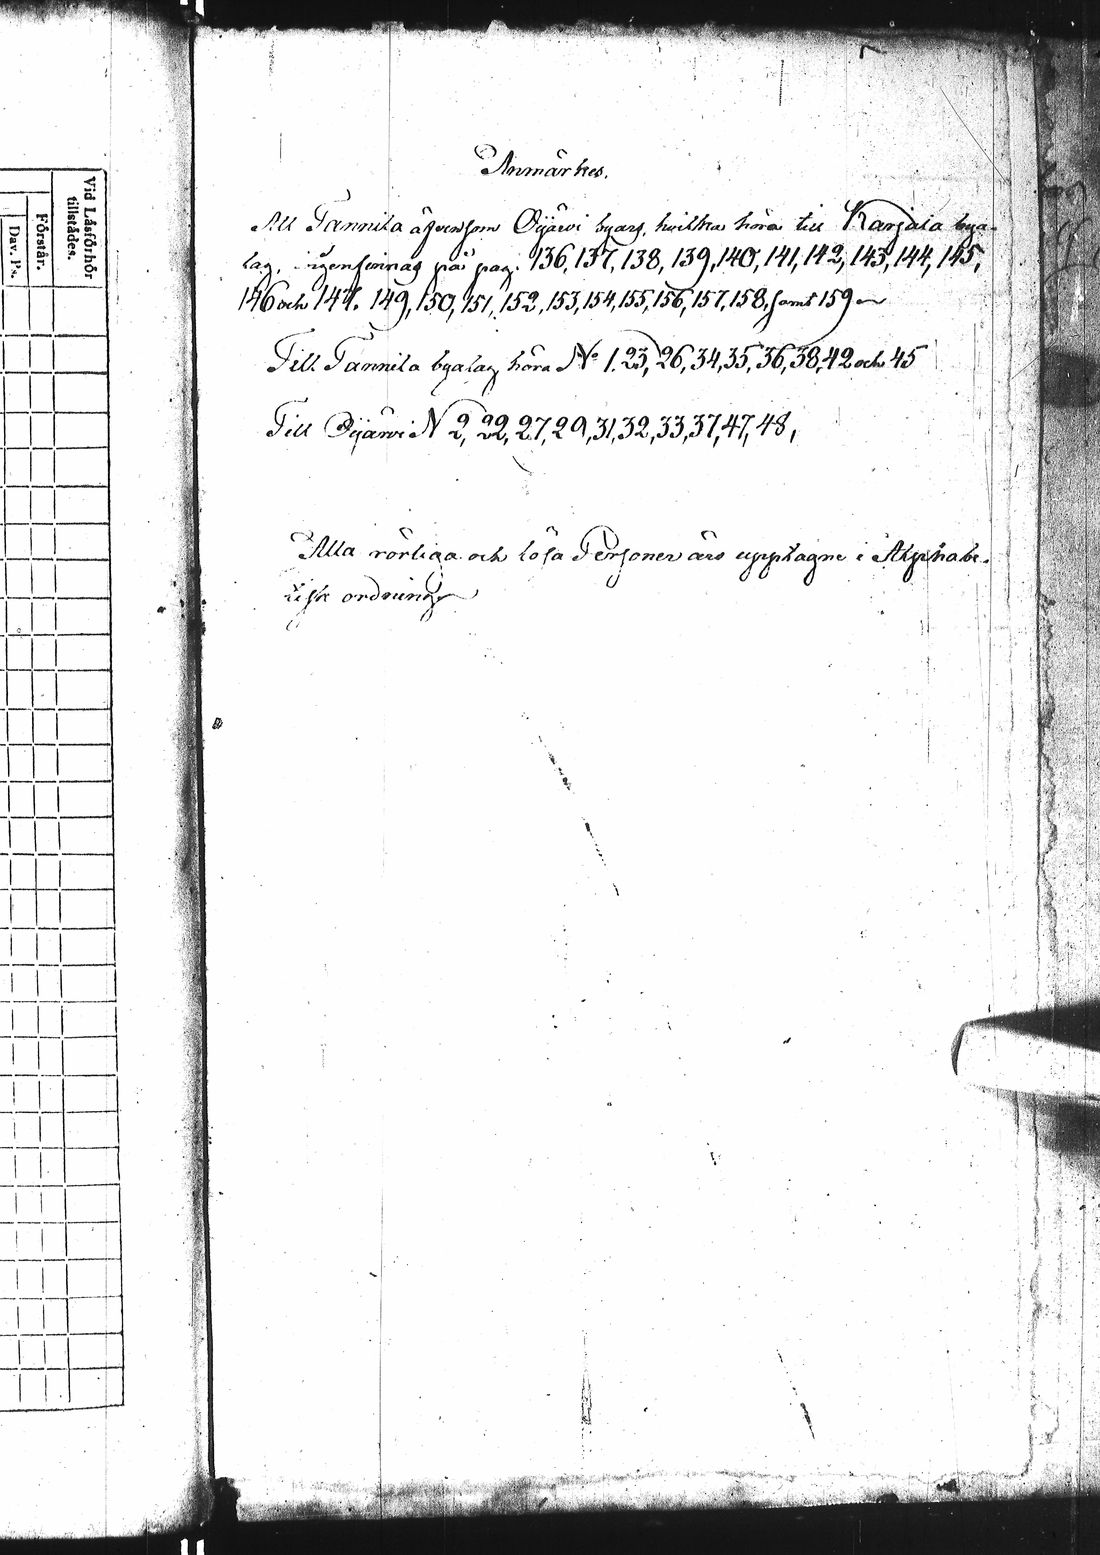 Vid Läsförhör
tillstädes.
Förstår.
Dav. Ps.
Anmärkes.
Att Tannila äfvensom Oijärvi byars, hvilka höra till Karjala bya-
lag, igenfinnas på pag. 136, 137, 138, 139, 140, 141, 142, 143, 144, 145,
146 och 147. 149, 150, 151, 152, 153, 154, 155, 156, 157, 158, samt 159
Till Tannila byalag höra No 1. 23, 26, 34, 35, 36, 38, 42 och 45
Till Oijärvi N 2, 22, 27, 29, 31, 32, 33, 37, 47, 48,
Alla rörliga och lösa Personer äro upptagne i Alphabe-
tisk ordning